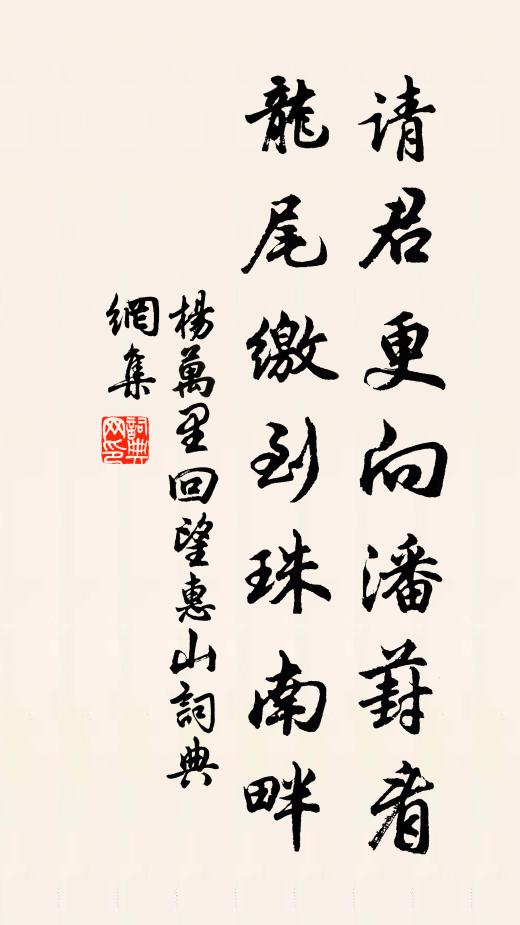 请君更向潘葑看
龍尾繳到珠南畔
楊萬里回望惠山詞典
網集
詞典網印